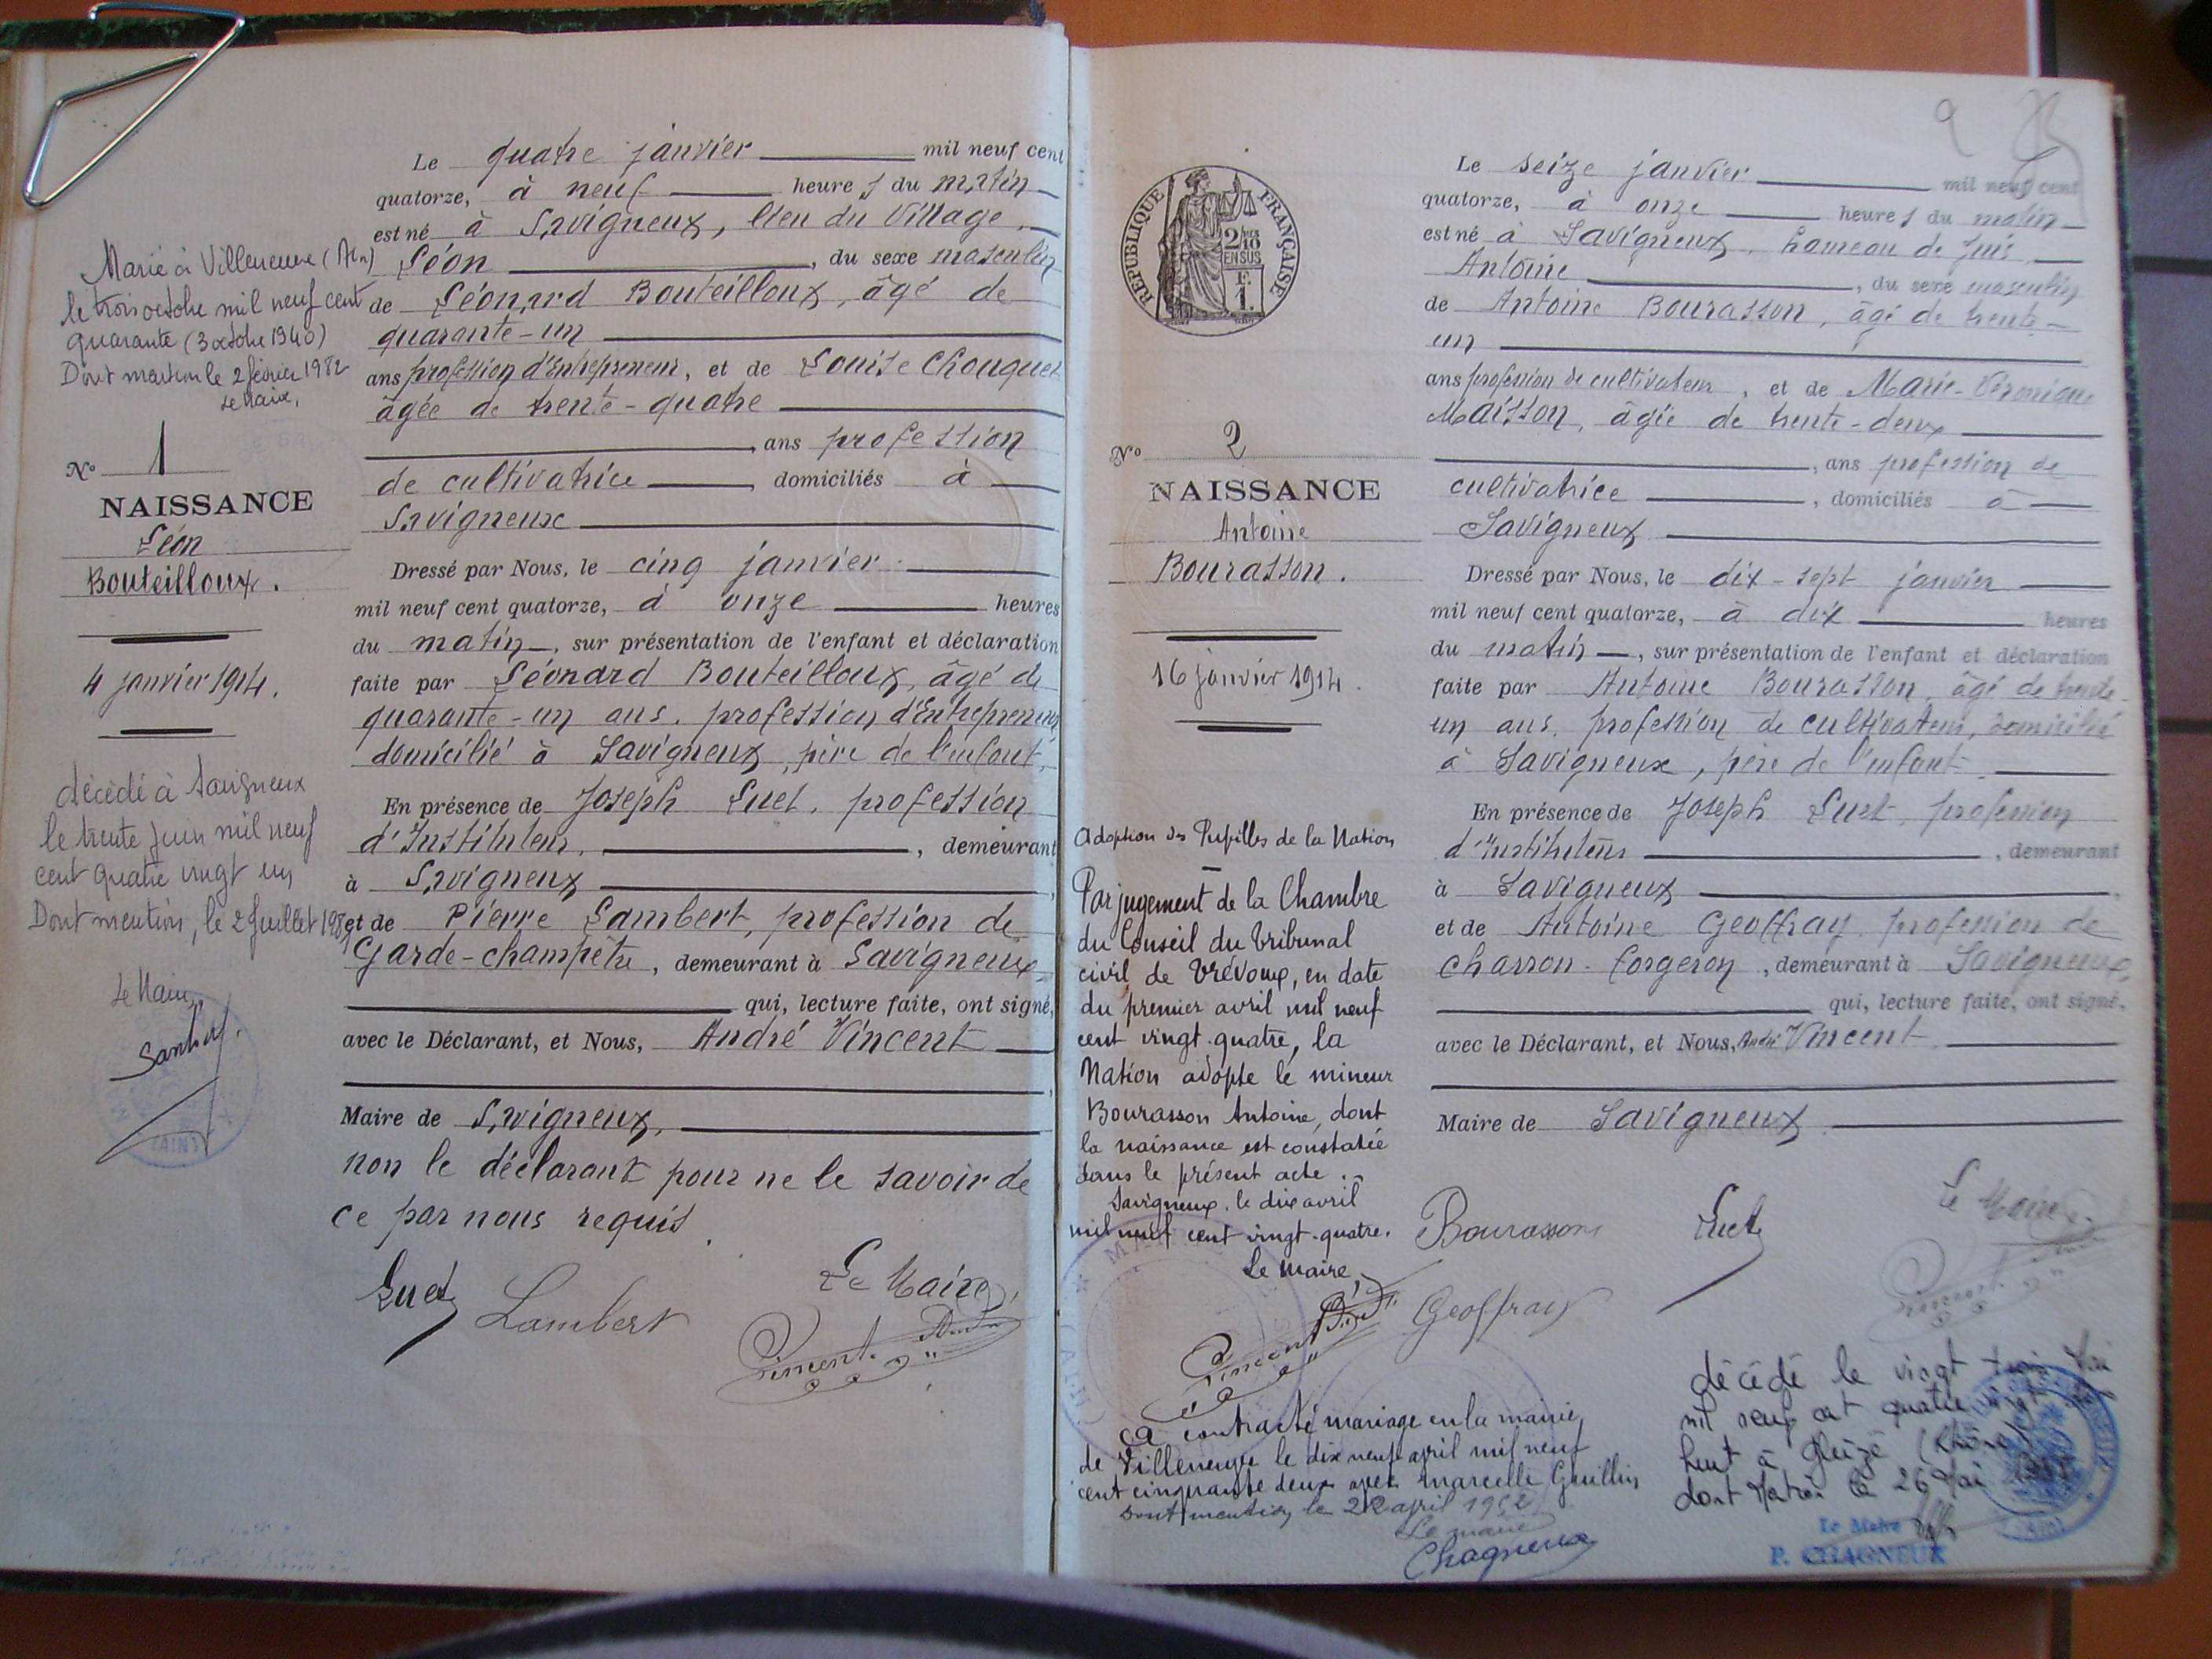 Le quatre janvier mil neuf cent
quatorze, à neuf heures du matin
est né à Savigneux, lieu du Village,
Léon, du sexe masculin
de Léonard Bouteilloux, âgé de
quarante-un
ans profession d'Entrepreneur, et de Louise Chouquet
âgée de trente-quatre
, ans profession
de cultivatrice, domiciliés à
Savigneux
Dressé par Nous, le cinq janvier
mil neuf cent quatorze, à onze heures
du matin, sur présentation de l'enfant et déclaration
faite par Léonard Bouteilloux, âgé de
quarante-un ans, profession d'Entrepreneur
domicilié à Savigneux, père de l'enfant,
En présence de Joseph Luet, profession
d'Instituteur, demeurant
à Savigneux,
et de Pierre Lambert, profession de
Garde-champêtre, demeurant à Savigneux
qui, lecture faite, ont signé,
avec le Déclarant, et Nous, André Vincent
Maire de Savigneux,
non le déclarant pour ne le savoir de
ce par nous requis.
Luet
Lambert
Le Maire,
Vincent André
Marié à Villeneuve (Ain)
le trois octobre mil neuf cent
quarante (3 octobre 1940)
Dont mention le 2 février 1982
Le Maire,
No 1
NAISSANCE
Léon
Bouteilloux.
4 janvier 1914.
décédé à Savigneux
le trente juin mil neuf
cent quatre vingt un
Dont mention, le 2 Juillet 1981
Le Maire,
(AIN)
2 
RÉPUBLIQUE FRANÇAISE
2/10
EN SUS
No 2
NAISSANCE
Antoine
Bourasson.
16 janvier 1914.
Adoption des Pupilles de la Nation
Par jugement de la Chambre
du Conseil du tribunal
civil de Trévoux, en date
du premier avril mil neuf
cent vingt-quatre, la
Nation adopte le mineur
Bourasson Antoine, dont
la naissance est constatée
dans le présent acte.
Savigneux, le dix avril
mil neuf cent vingt-quatre.
Le Maire,
Vincent André
a contracté mariage en la mairie
de Villeneuve le dix neuf avril mil neuf
cent cinquante deux avec Marcelle Guillin
Dont mention le 22 avril 1952
Le maire
Chagneux
Le seize janvier mil neuf cent
quatorze, à onze heures du matin
est né à Savigneux, hameau de Juis,
Antoine, du sexe masculin
de Antoine Bourasson, âgé de trente-
un
ans profession de cultivateur, et de Marie-Véronique
Maisson, âgée de trente-deux
, ans profession de
cultivatrice, domiciliés à
Savigneux
Dressé par Nous, le dix-sept janvier
mil neuf cent quatorze, à dix heures
du matin, sur présentation de l'enfant et déclaration
faite par Antoine Bourasson, âgé de trente-
un ans, profession de cultivateur, domicilié
à Savigneux, père de l'enfant
En présence de Joseph Luet, profession
d'Instituteur, demeurant
à Savigneux,
et de Antoine Geoffray, profession de
charron-forgeron, demeurant à Savigneux,
qui, lecture faite, ont signé,
avec le Déclarant, et Nous, André Vincent
Maire de Savigneux
Bourasson
Luet
Le Maire
Vincent
Geoffray
décédé le vingt trois Mai
mil neuf cent quatre vingt
huit à Gleizé (Rhône)
dont Mention le 26 Mai
Le Maire
P. CHAGNEUX